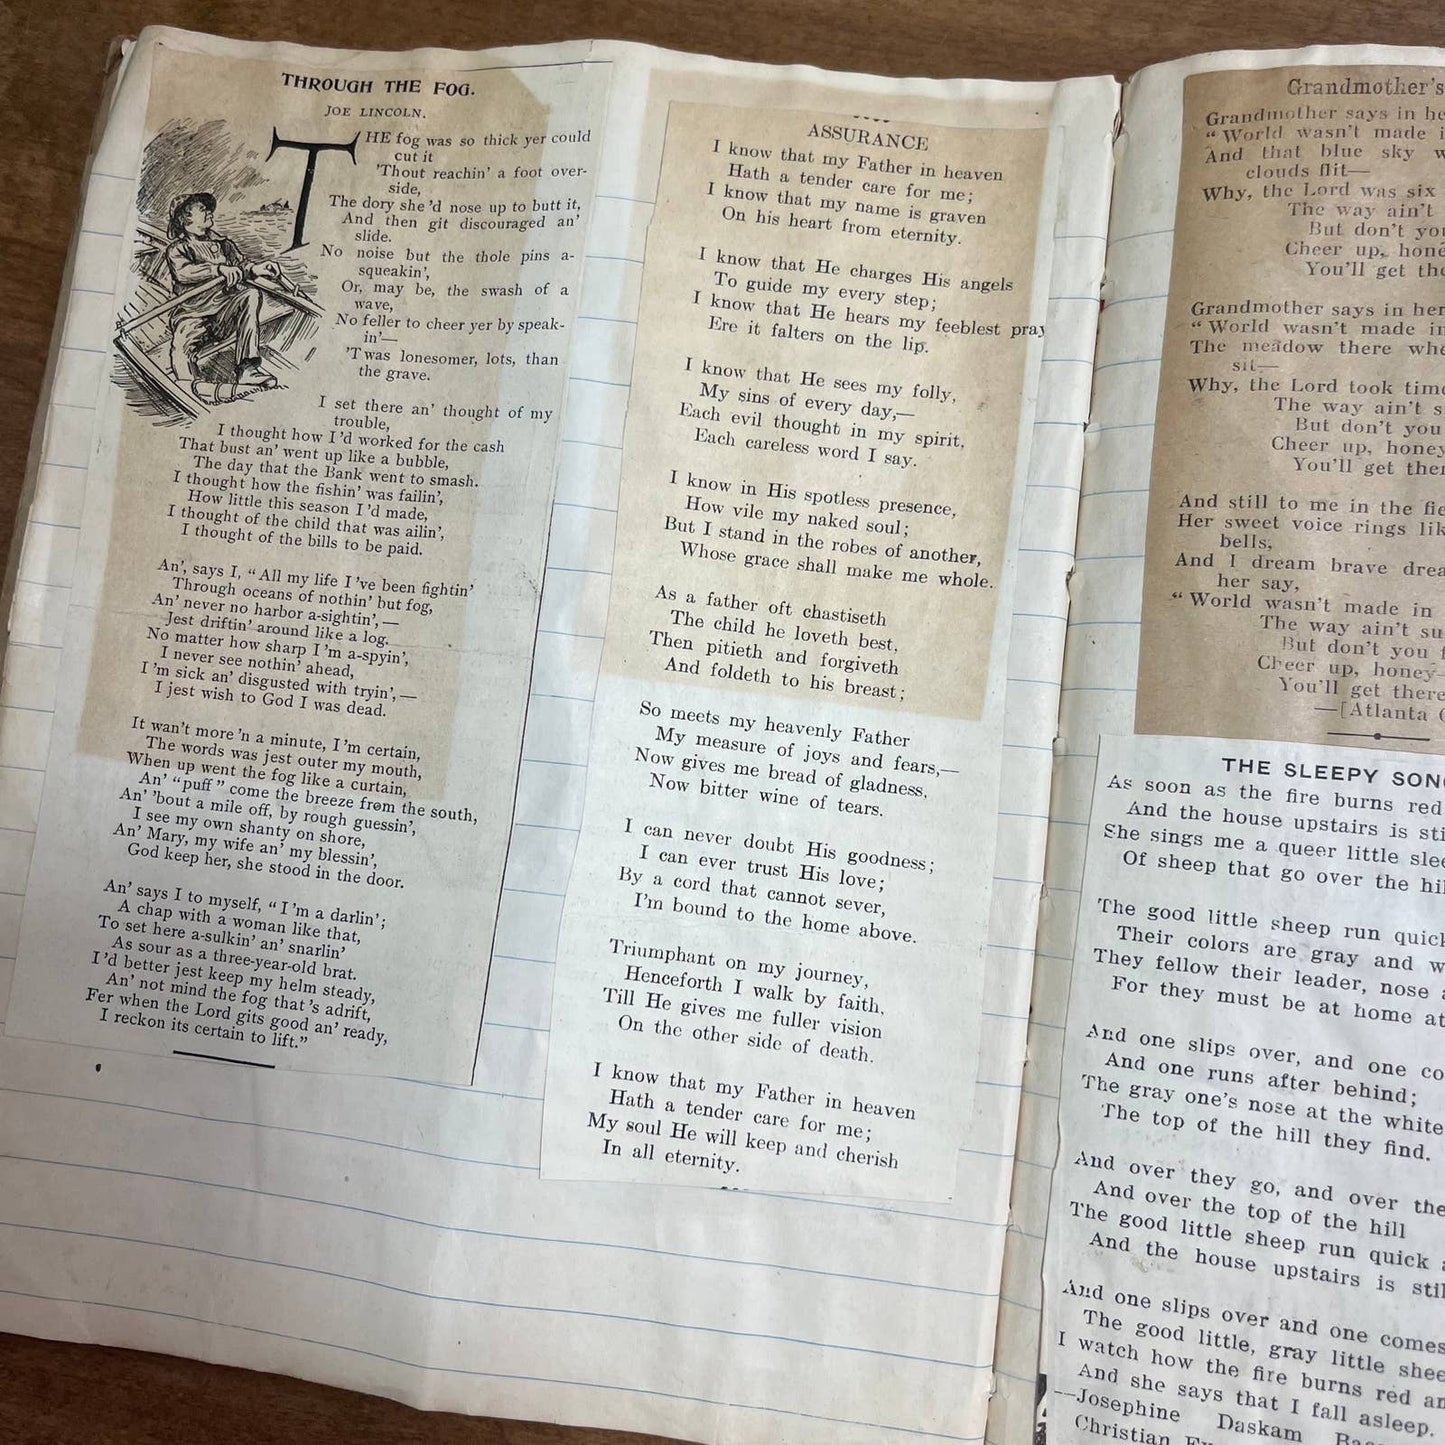 THROUGH THE FOG.
JOE LINCOLN.
THE fog was so thick yer could
cut it
'Thout reachin' a foot over-
side,
The dory she'd nose up to butt it,
And then git discouraged an'
slide.
No noise but the thole pins a-
squeakin',
Or, may be, the swash of a
wave,
No feller to cheer yer by speak-
in'—
'Twas lonesomer, lots, than
the grave.
I set there an' thought of my
trouble,
I thought how I'd worked for the cash
That bust an' went up like a bubble,
The day that the Bank went to smash.
I thought how the fishin' was failin',
How little this season I'd made,
I thought of the child that was ailin',
I thought of the bills to be paid.
An', says I, "All my life I've been fightin'
Through oceans of nothin' but fog,
An' never no harbor a-sightin',—
Jest driftin' around like a log.
No matter how sharp I'm a-spyin',
I never see nothin' ahead,
I'm sick an' disgusted with tryin',—
I jest wish to God I was dead.
It wan't more'n a minute, I'm certain,
The words was jest outer my mouth,
When up went the fog like a curtain,
An' "puff" come the breeze from the south,
An' 'bout a mile off, by rough guessin',
I see my own shanty on shore,
An' Mary, my wife an' my blessin',
God keep her, she stood in the door.
An' says I to myself, "I'm a darlin';
A chap with a woman like that,
To set here a-sulkin' an' snarlin'
As sour as a three-year-old brat.
I'd better jest keep my helm steady,
An' not mind the fog that's adrift,
Fer when the Lord gits good an' ready,
I reckon its certain to lift."
ASSURANCE
I know that my Father in heaven
Hath a tender care for me;
I know that my name is graven
On his heart from eternity.
I know that He charges His angels
To guide my every step;
I know that He hears my feeblest pray
Ere it falters on the lip.
I know that He sees my folly,
My sins of every day,—
Each evil thought in my spirit,
Each careless word I say.
I know in His spotless presence,
How vile my naked soul;
But I stand in the robes of another,
Whose grace shall make me whole.
As a father oft chastiseth
The child he loveth best,
Then pitieth and forgiveth
And foldeth to his breast;
So meets my heavenly Father
My measure of joys and fears,—
Now gives me bread of gladness,
Now bitter wine of tears.
I can never doubt His goodness;
I can ever trust His love;
By a cord that cannot sever,
I'm bound to the home above.
Triumphant on my journey,
Henceforth I walk by faith,
Till He gives me fuller vision
On the other side of death.
I know that my Father in heaven
Hath a tender care for me;
My soul He will keep and cherish
In all eternity.
Grandmother's
Grandmother says in he
"World wasn't made i
And that blue sky w
clouds flit—
Why, the Lord was six
The way ain't
But don't you
Cheer up, hone
You'll get the
Grandmother says in her
"World wasn't made in
The meadow there whe
sit—
Why, the Lord took time
The way ain't s
But don't you
Cheer up, honey
You'll get ther
And still to me in the fie
Her sweet voice rings lik
bells,
And I dream brave drea
her say,
"World wasn't made in
The way ain't su
But don't you f
Cheer up, honey—
You'll get there
—[Atlanta C
THE SLEEPY SONG
As soon as the fire burns red
And the house upstairs is sti
She sings me a queer little slee
Of sheep that go over the hil
The good little sheep run quick
Their colors are gray and w
They fellow their leader, nose a
For they must be at home at
And one slips over, and one co
And one runs after behind;
The gray one's nose at the white
The top of the hill they find.
And over they go, and over the
And over the top of the hill
The good little sheep run quick a
And the house upstairs is stil
And one slips over and one comes
The good little, gray little shee
I watch how the fire burns red an
And she says that I fall asleep.
—Josephine Daskam Bac
Christian